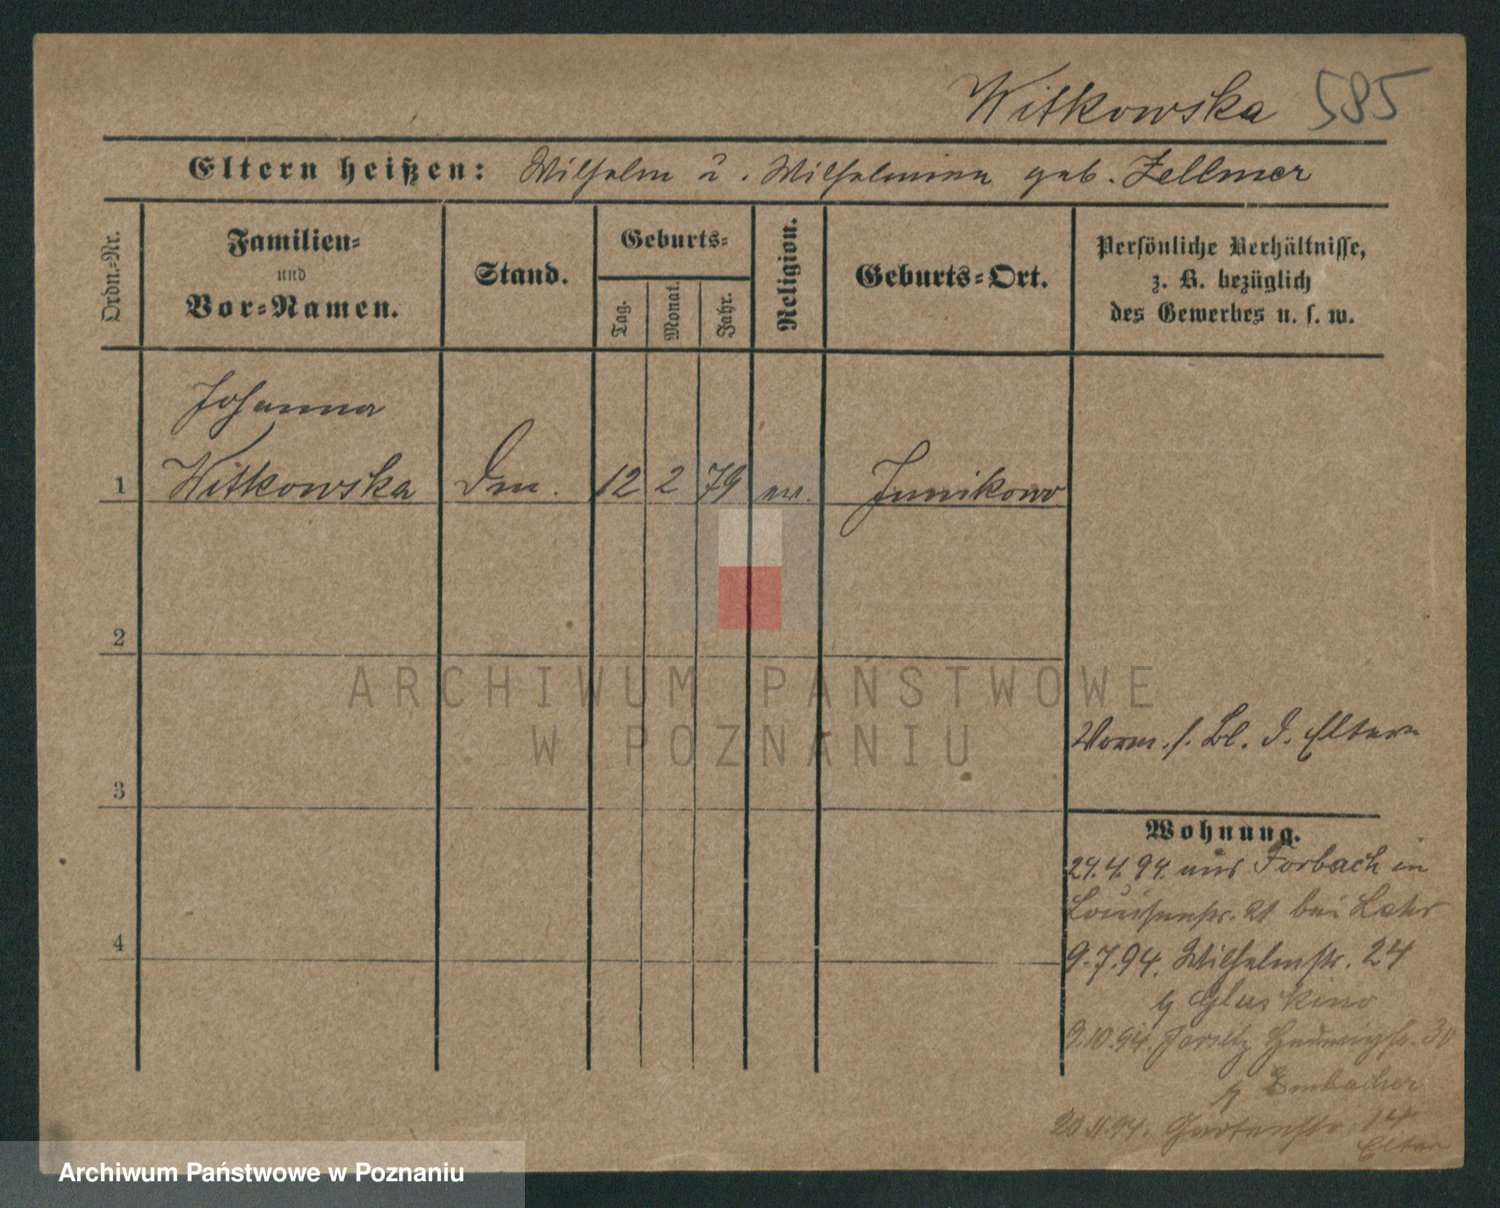 Witkowska 585
Eltern heißen: Wilhelm u. Wilhelmina geb. Zellmer
Ordn.=Nr.
Familien=
und
Vor=Namen.
Stand.
Geburts=
Tag.
Monat.
Jahr.
Religion.
Geburts=Ort.
Persönliche Verhältnisse,
z. B. bezüglich
des Gewerbes u. s. w.
Johanna
1 Witkowska 12 2 79 ev. Junikowo
2
ARCHIWUM PAŃSTWOWE
W POZNANIU
Vorm. s. Bl. d. Eltern
3
Wohnung.
29.4.94. aus Forbach in
Louisenstr. 21 bei Lehr
4
9.7.94. Wilhelmstr. 24
Gluskino
9.10.94. Jersitz Hedwigstr. 30
Embacher
20.11.94. Gartenstr. 14
Eltern
Archiwum Państwowe w Poznaniu